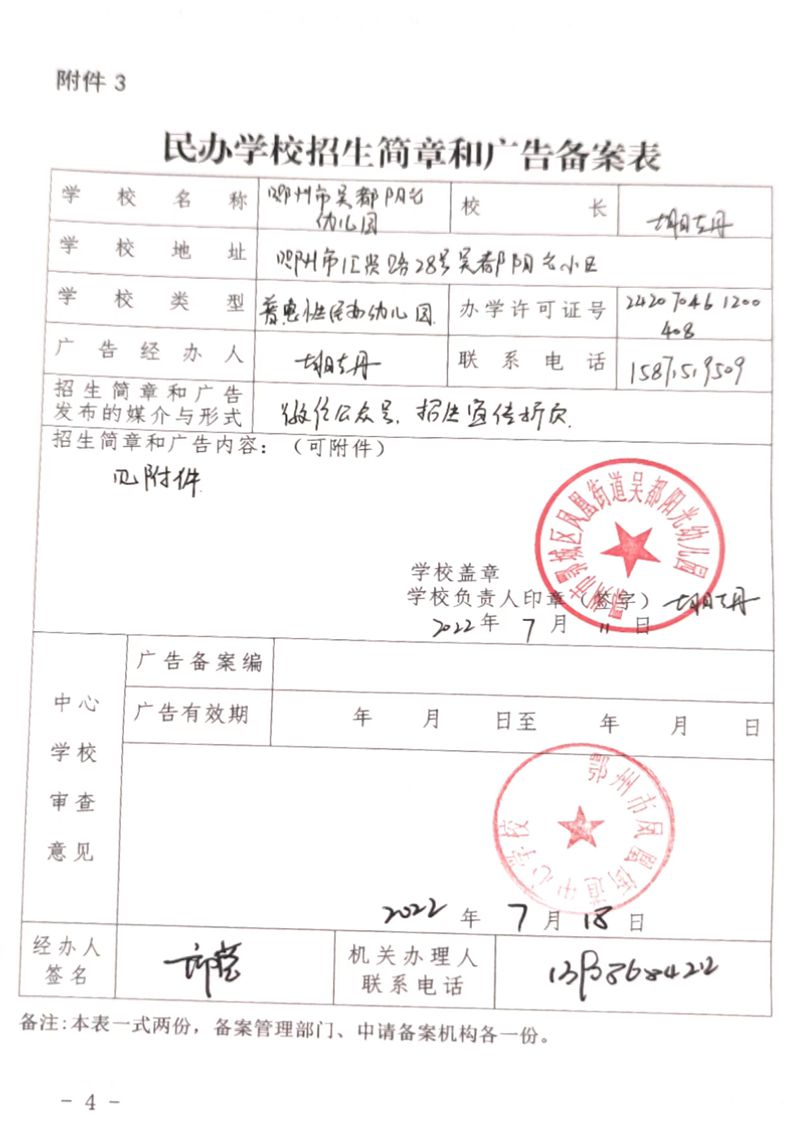 附件 3
民办学校招生简章和广告备案表
学校名称
鄂州市吴都阳光
幼儿园
校长
学校地址
鄂州市汇贤路28号吴都阳光小区
学校类型
普惠性民办幼儿园
办学许可证号
24207046 1200
408
广告经办人
联系电话
招生简章和广告
发布的媒介与形式
微信公众号、招生宣传折页
招生简章和广告内容：（可附件）
见附件
鄂州市鄂城区凤凰街道吴都阳光幼儿园
学校盖章
学校负责人印章（签字）
2022年 7月 11日
中心
学校
审查
意见
广告备案编
广告有效期
年 月 日至 年 月 日
鄂州市凤凰街道中心学校
2022 年 7 月 18 日
经办人
签名
机关办理人
联系电话
备注:本表一式两份，备案管理部门、申请备案机构各一份。
- 4 -